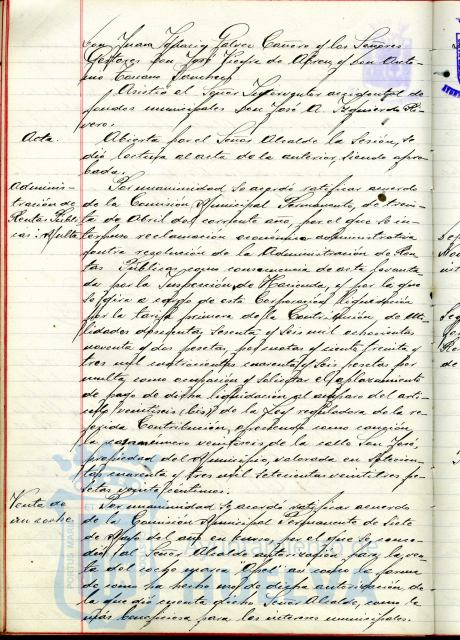 Don Juan Ignacio Gálvez Cañero y los Señores
Gestores Don José Vieyra de Abreu y Don Anto-
nio Corsano
Asistió el Señor Interventor accidental de
fondos municipales Don José A. Izquierdo Ri-
vero.
Acta.
Abierta por el Señor Alcalde la Sesión, se
dió lectura al acta de la anterior, siendo apro-
bada.
Adminis-
tración de
Rentas Públi-
cas: Multa
Por unanimidad se acordó ratificar acuerdo
de la Comisión Municipal Permanente, de trein-
ta de Abril del corriente año, por el que se in-
terpuso reclamación económico administrativa
contra resolución de la Administración de Ren-
tas Públicas, como consecuencia de acta levanta-
da por la Inspección de Hacienda, y por la que
se gira a cargo de esta Corporación liquidación
por la tarifa primera de la Contribución de Uti-
lidades doscientas sesenta y seis mil ochocientas
noventa y dos pesetas, por cuotas y ciento treinta y
tres mil cuatrocientas cuarenta y seis pesetas por
multa, como ocupación y solicitar el aplazamiento
de pago de dicha liquidación al amparo del artí-
culo veintiseis (bis) de la Ley reguladora de la re-
ferida Contribución, ofreciendo como caución,
la casa número veintiseis de la calle San José,
propiedad del Municipio, valorada en setecien-
tas cuarenta y tres mil setecientas veintitres pe-
setas veinte céntimos.
Venta de
un coche
Por unanimidad se acordó ratificar acuerdo
de la Comisión Municipal Permanente de siete
de Mayo del año en curso, por el que se conce-
dió al Señor Alcalde voto para la ven-
ta del coche marca "Opel" así como la forma
de como ha hecho uso de dicha autorización, de
la que dió cuenta dicho Señor Alcalde, como la
más beneficiosa para los intereses municipales.
Ayuntamiento de
HUELVA